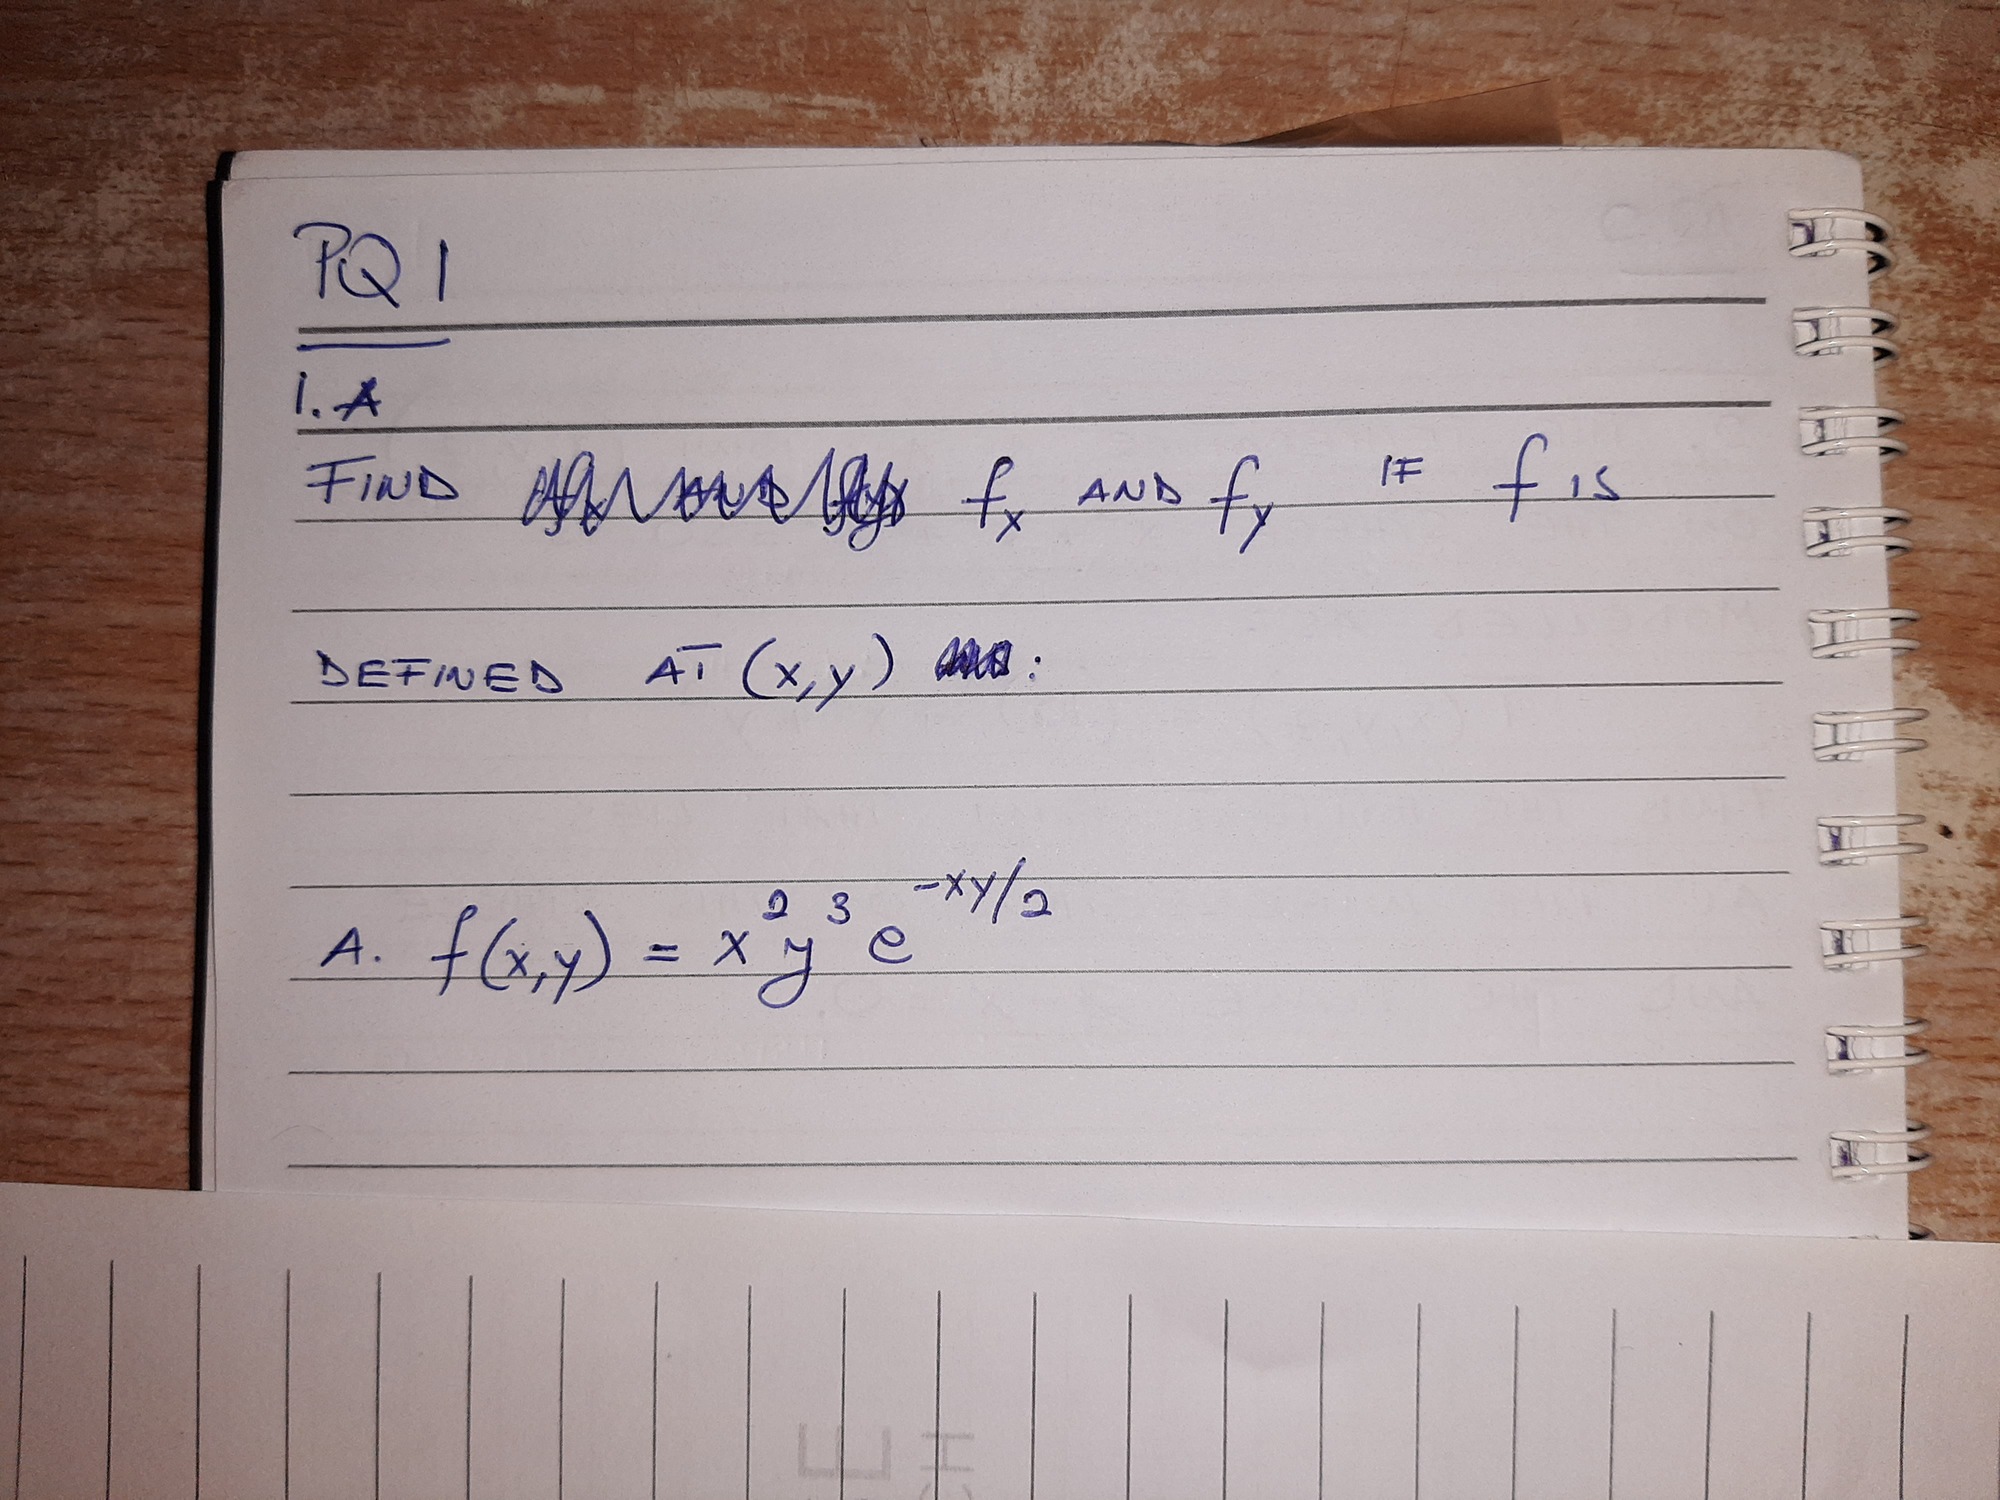 PQ 1
1. A
FIND fx AND fy IF f IS
DEFINED AT (x,y) :
A. f(x,y) = x²y³e^(-xy/2)